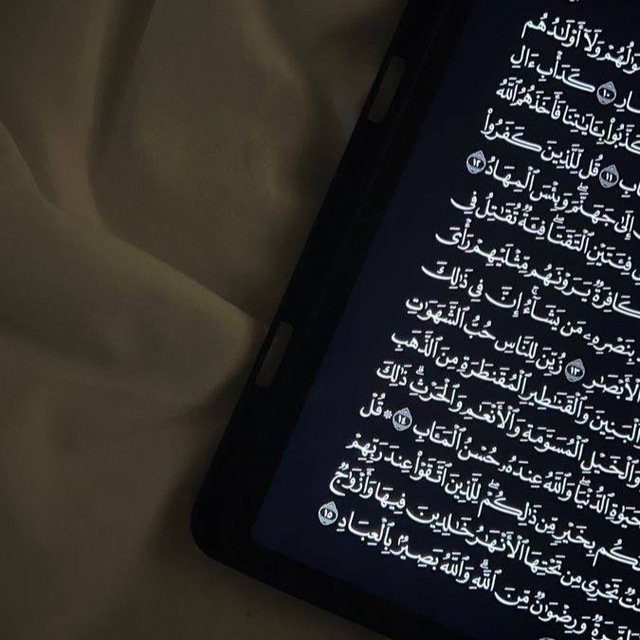 وَٰلُهُمْ وَلَآ أَوْلَٰدُهُم
ارِ ١٠ كَدَأْبِ ءَالِ
كَذَّبُوا۟ بِـَٔايَٰتِنَا فَأَخَذَهُمُ ٱللَّهُ
بِ ١١ قُل لِّلَّذِينَ كَفَرُوا۟
إِلَىٰ جَهَنَّمَ ۚ وَبِئْسَ ٱلْمِهَادُ ١٢
فِئَتَيْنِ ٱلْتَقَتَا ۖ فِئَةٌ تُقَٰتِلُ فِى
كَافِرَةٌ يَرَوْنَهُم مِّثْلَيْهِمْ رَأْىَ
بِنَصْرِهِۦ مَن يَشَآءُ ۗ إِنَّ فِى ذَٰلِكَ
ٱلْأَبْصَٰرِ ١٣ زُيِّنَ لِلنَّاسِ حُبُّ ٱلشَّهَوَٰتِ
وَٱلْبَنِينَ وَٱلْقَنَٰطِيرِ ٱلْمُقَنطَرَةِ مِنَ ٱلذَّهَبِ
وَٱلْخَيْلِ ٱلْمُسَوَّمَةِ وَٱلْأَنْعَٰمِ وَٱلْحَرْثِ ۗ ذَٰلِكَ
يَوٰةِ ٱلدُّنْيَا ۖ وَٱللَّهُ عِندَهُۥ حُسْنُ ٱلْمَـَٔابِ ١٤ ۞ قُلْ
كُم بِخَيْرٍ مِّن ذَٰلِكُمْ ۚ لِلَّذِينَ ٱتَّقَوْا۟ عِندَ رَبِّهِمْ
تٌ تَجْرِى مِن تَحْتِهَا ٱلْأَنْهَٰرُ خَٰلِدِينَ فِيهَا وَأَزْوَٰجٌ
هَّرَةٌ وَرِضْوَٰنٌ مِّنَ ٱللَّهِ ۗ وَٱللَّهُ بَصِيرٌۢ بِٱلْعِبَادِ ١٥